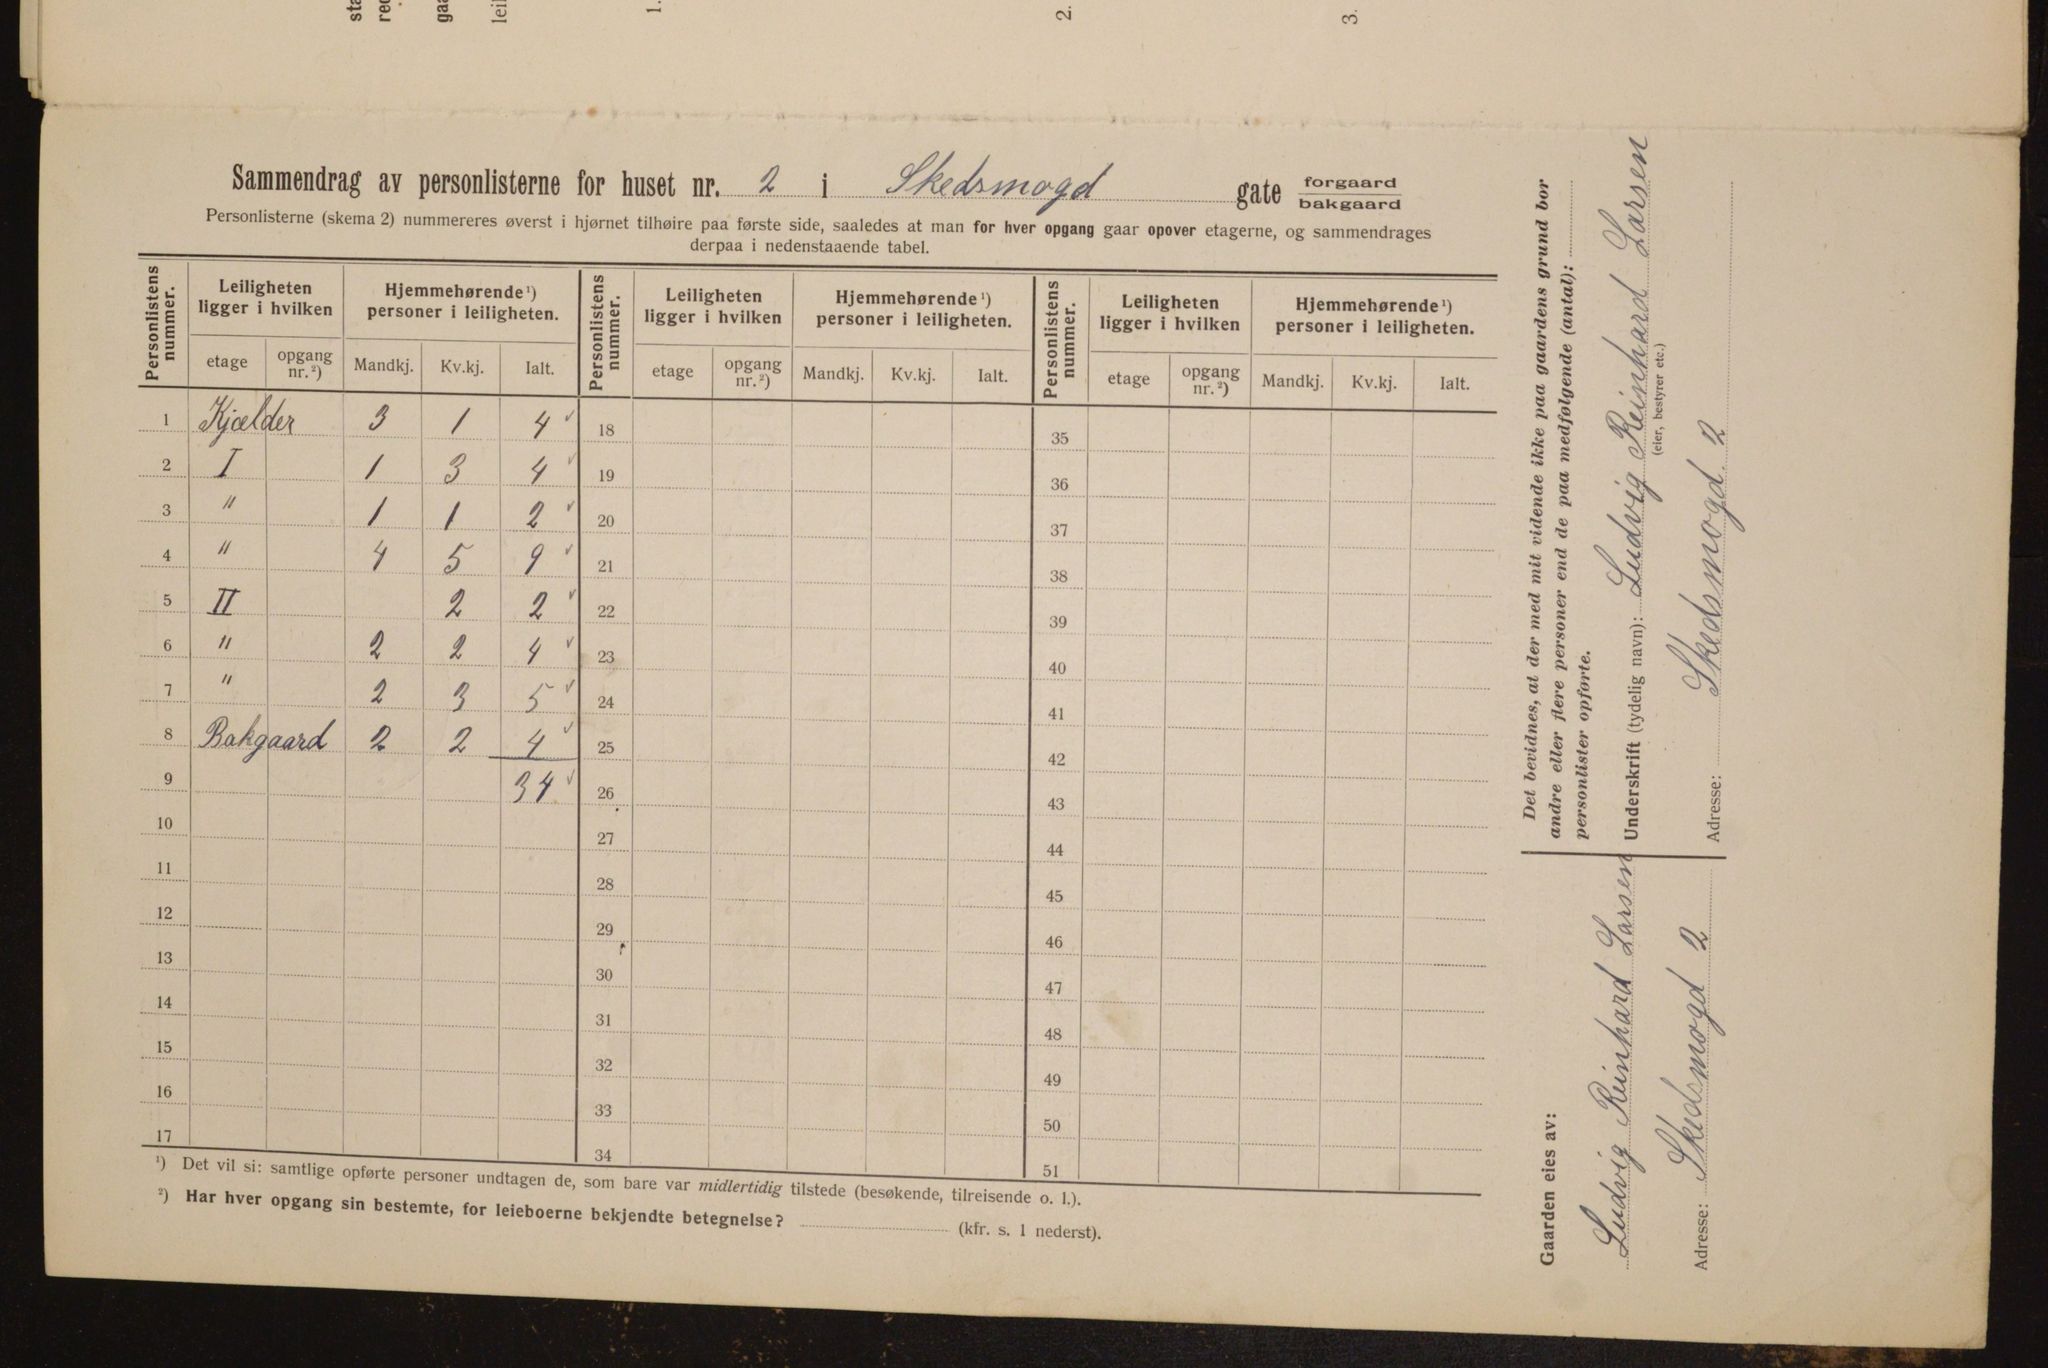 sta
red
gaa
leil
1.
2.
3.
Sammendrag av personlisterne for huset nr. 2 i Skedsmogd gate forgaard bakgaard
Personlisterne (skema 2) nummereres øverst i hjørnet tilhøire paa første side, saaledes at man for hver opgang gaar opover etagerne, og sammendrages
derpaa i nedenstaaende tabel.
Personlistens nummer. Leiligheten ligger i hvilken Hjemmehørende¹) personer i leiligheten. Personlistens nummer. Leiligheten ligger i hvilken Hjemmehørende¹) personer i leiligheten. Personlistens nummer. Leiligheten ligger i hvilken Hjemmehørende¹) personer i leiligheten.
etage opgang nr.²) Mandkj. Kv.kj. Ialt. etage opgang nr.²) Mandkj. Kv.kj. Ialt. etage opgang nr.²) Mandkj. Kv.kj. Ialt.
1 Kjælder 3 1 4 ✓ 18 35
2 I 1 3 4 ✓ 19 36
3 " 1 1 2 ✓ 20 37
4 " 4 5 9 ✓ 21 38
5 II 2 2 ✓ 22 39
6 " 2 2 4 ✓ 23 40
7 " 2 3 5 ✓ 24 41
8 Bakgaard 2 2 4 ✓ 25 42
9 34 ✓ 26 43
10 27 44
11 28 45
12 29 46
13 30 47
14 31 48
15 32 49
16 33 50
17 34 51
¹) Det vil si: samtlige opførte personer undtagen de, som bare var midlertidig tilstede (besøkende, tilreisende o. l.).
²) Har hver opgang sin bestemte, for leieboerne bekjendte betegnelse? (kfr. s. 1 nederst).
Det bevidnes, at der med mit vidende ikke paa gaardens grund bor
andre eller flere personer end de paa medfølgende (antal):
personlister opførte.
Underskrift (tydelig navn): Ludvig Reinhard Larsen
(eier, bestyrer etc.)
Adresse: Skedsmogd 2
Gaarden eies av:
Ludvig Reinhard Larsen
Adresse: Skedsmogd 2